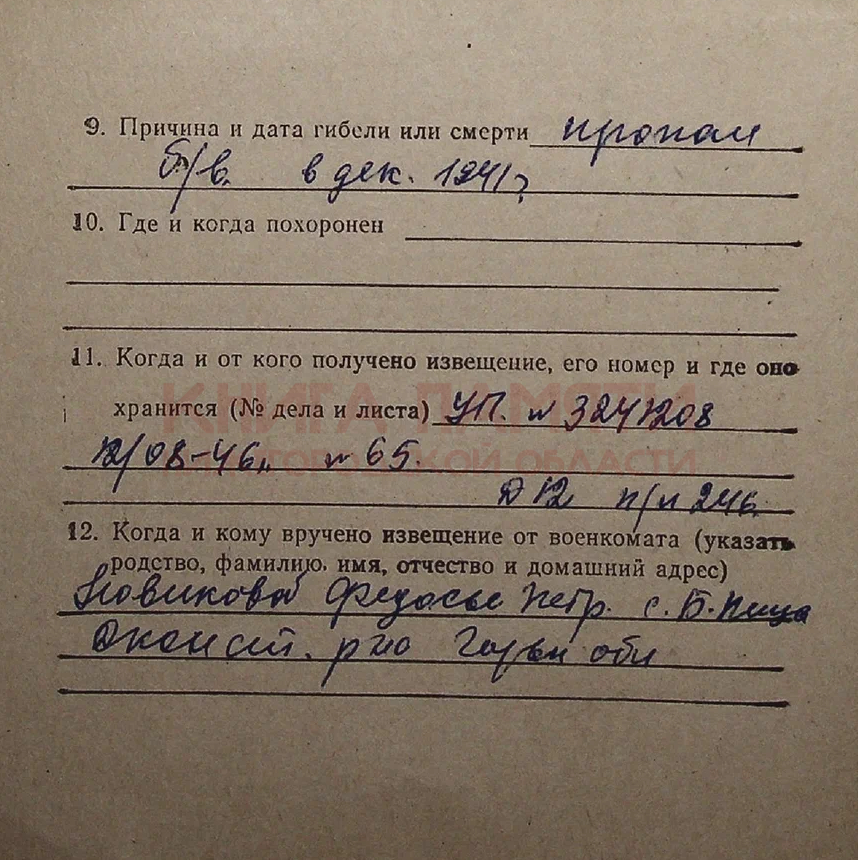 9. Причина и дата гибели или смерти пропал
б/в. в дек. 1941г
10. Где и когда похоронен
11. Когда и от кого получено извещение, его номер и где оно
КНИГА ПАМЯТИ
хранится (№ дела и листа) УП. № 3241208
12/08-46г. № 65.
НИЖЕГОРОДСКОЙ ОБЛАСТИ
Д 12 п/п 246.
12. Когда и кому вручено извещение от военкомата (указать
родство, фамилию, имя, отчество и домашний адрес)
Новиковой Федосье Петр. с. Б. Пица
р-но Горьк обл